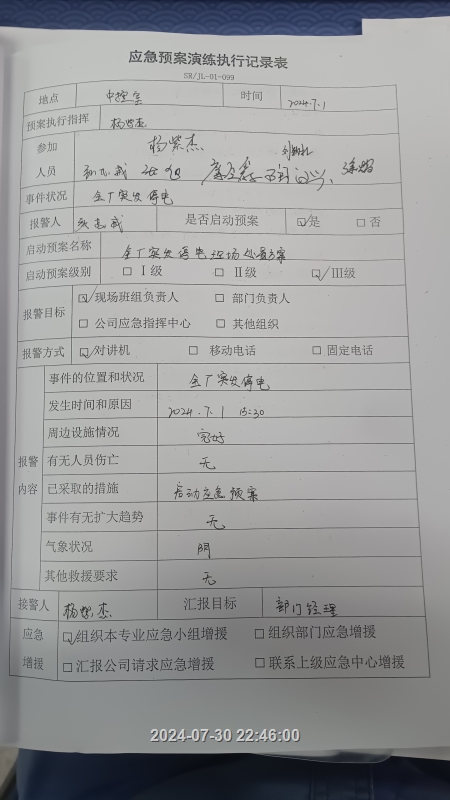 应急预案演练执行记录表
SR/JL-01-099
地点 中控室 时间 2024.7.1
预案执行指挥 杨紫杰
参加人员 杨紫杰
事件状况 全厂突发停电
报警人 是否启动预案 ☑是 □否
启动预案名称 全厂突发停电现场处置方案
启动预案级别 □Ⅰ级 □Ⅱ级 ☑Ⅲ级
报警目标 ☑现场班组负责人 □部门负责人
□公司应急指挥中心 □其他组织
报警方式 ☑对讲机 □移动电话 □固定电话
报警内容 事件的位置和状况 全厂突发停电
发生时间和原因 2024.7.1 15:30
周边设施情况 完好
有无人员伤亡 无
已采取的措施 启动应急预案
事件有无扩大趋势 无
气象状况 阴
其他救援要求 无
接警人 杨紫杰 汇报目标 部门经理
应急增援 ☑组织本专业应急小组增援 □组织部门应急增援
□汇报公司请求应急增援 □联系上级应急中心增援
2024-07-30 22:46:00